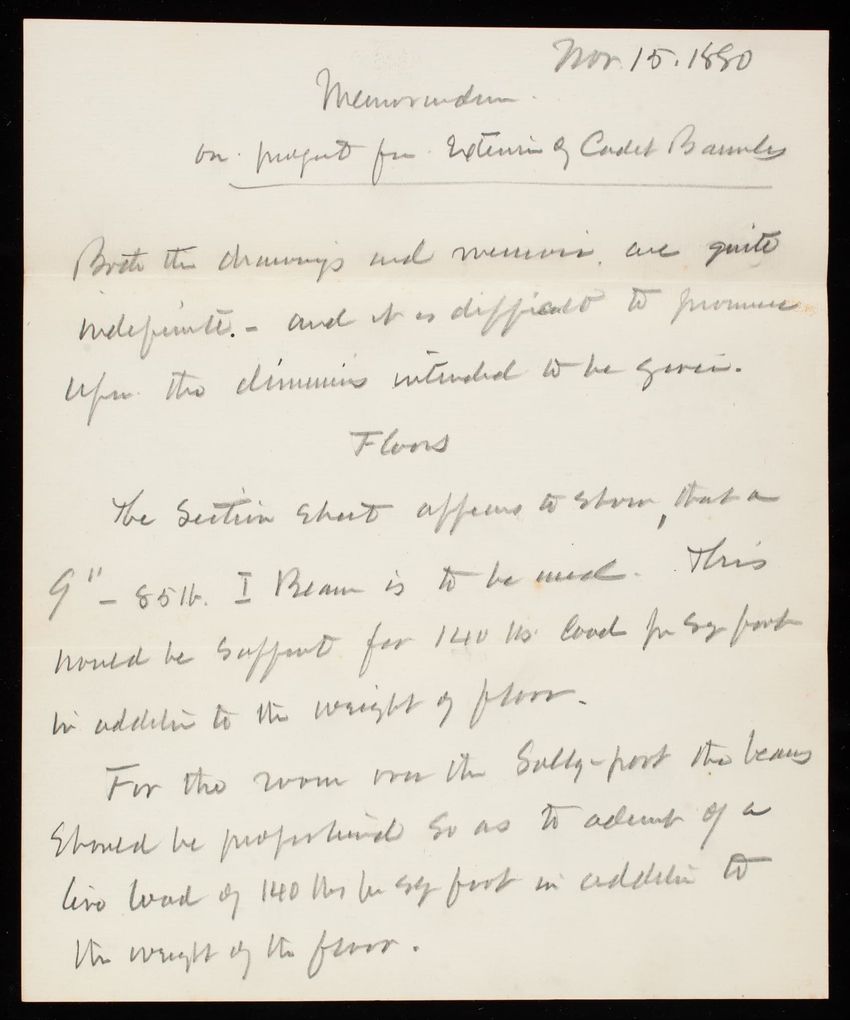 Nov. 15. 1880
Memorandum.
on project for Extension of Cadet Barracks
Both the drawings and memoir are quite
indefinite. - and it is difficult to pronounce
upon the dimensions intended to be given.
Floors
The Section Sheet appears to show, that a
9" - 85 lb. I Beam is to be used. This
would be support for 140 lbs load per sq foot
in addition to the weight of floor.
For the room over the Sally-port the beams
should be proportioned so as to admit of a
live load of 140 lbs per sq foot in addition to
the weight of the floor.